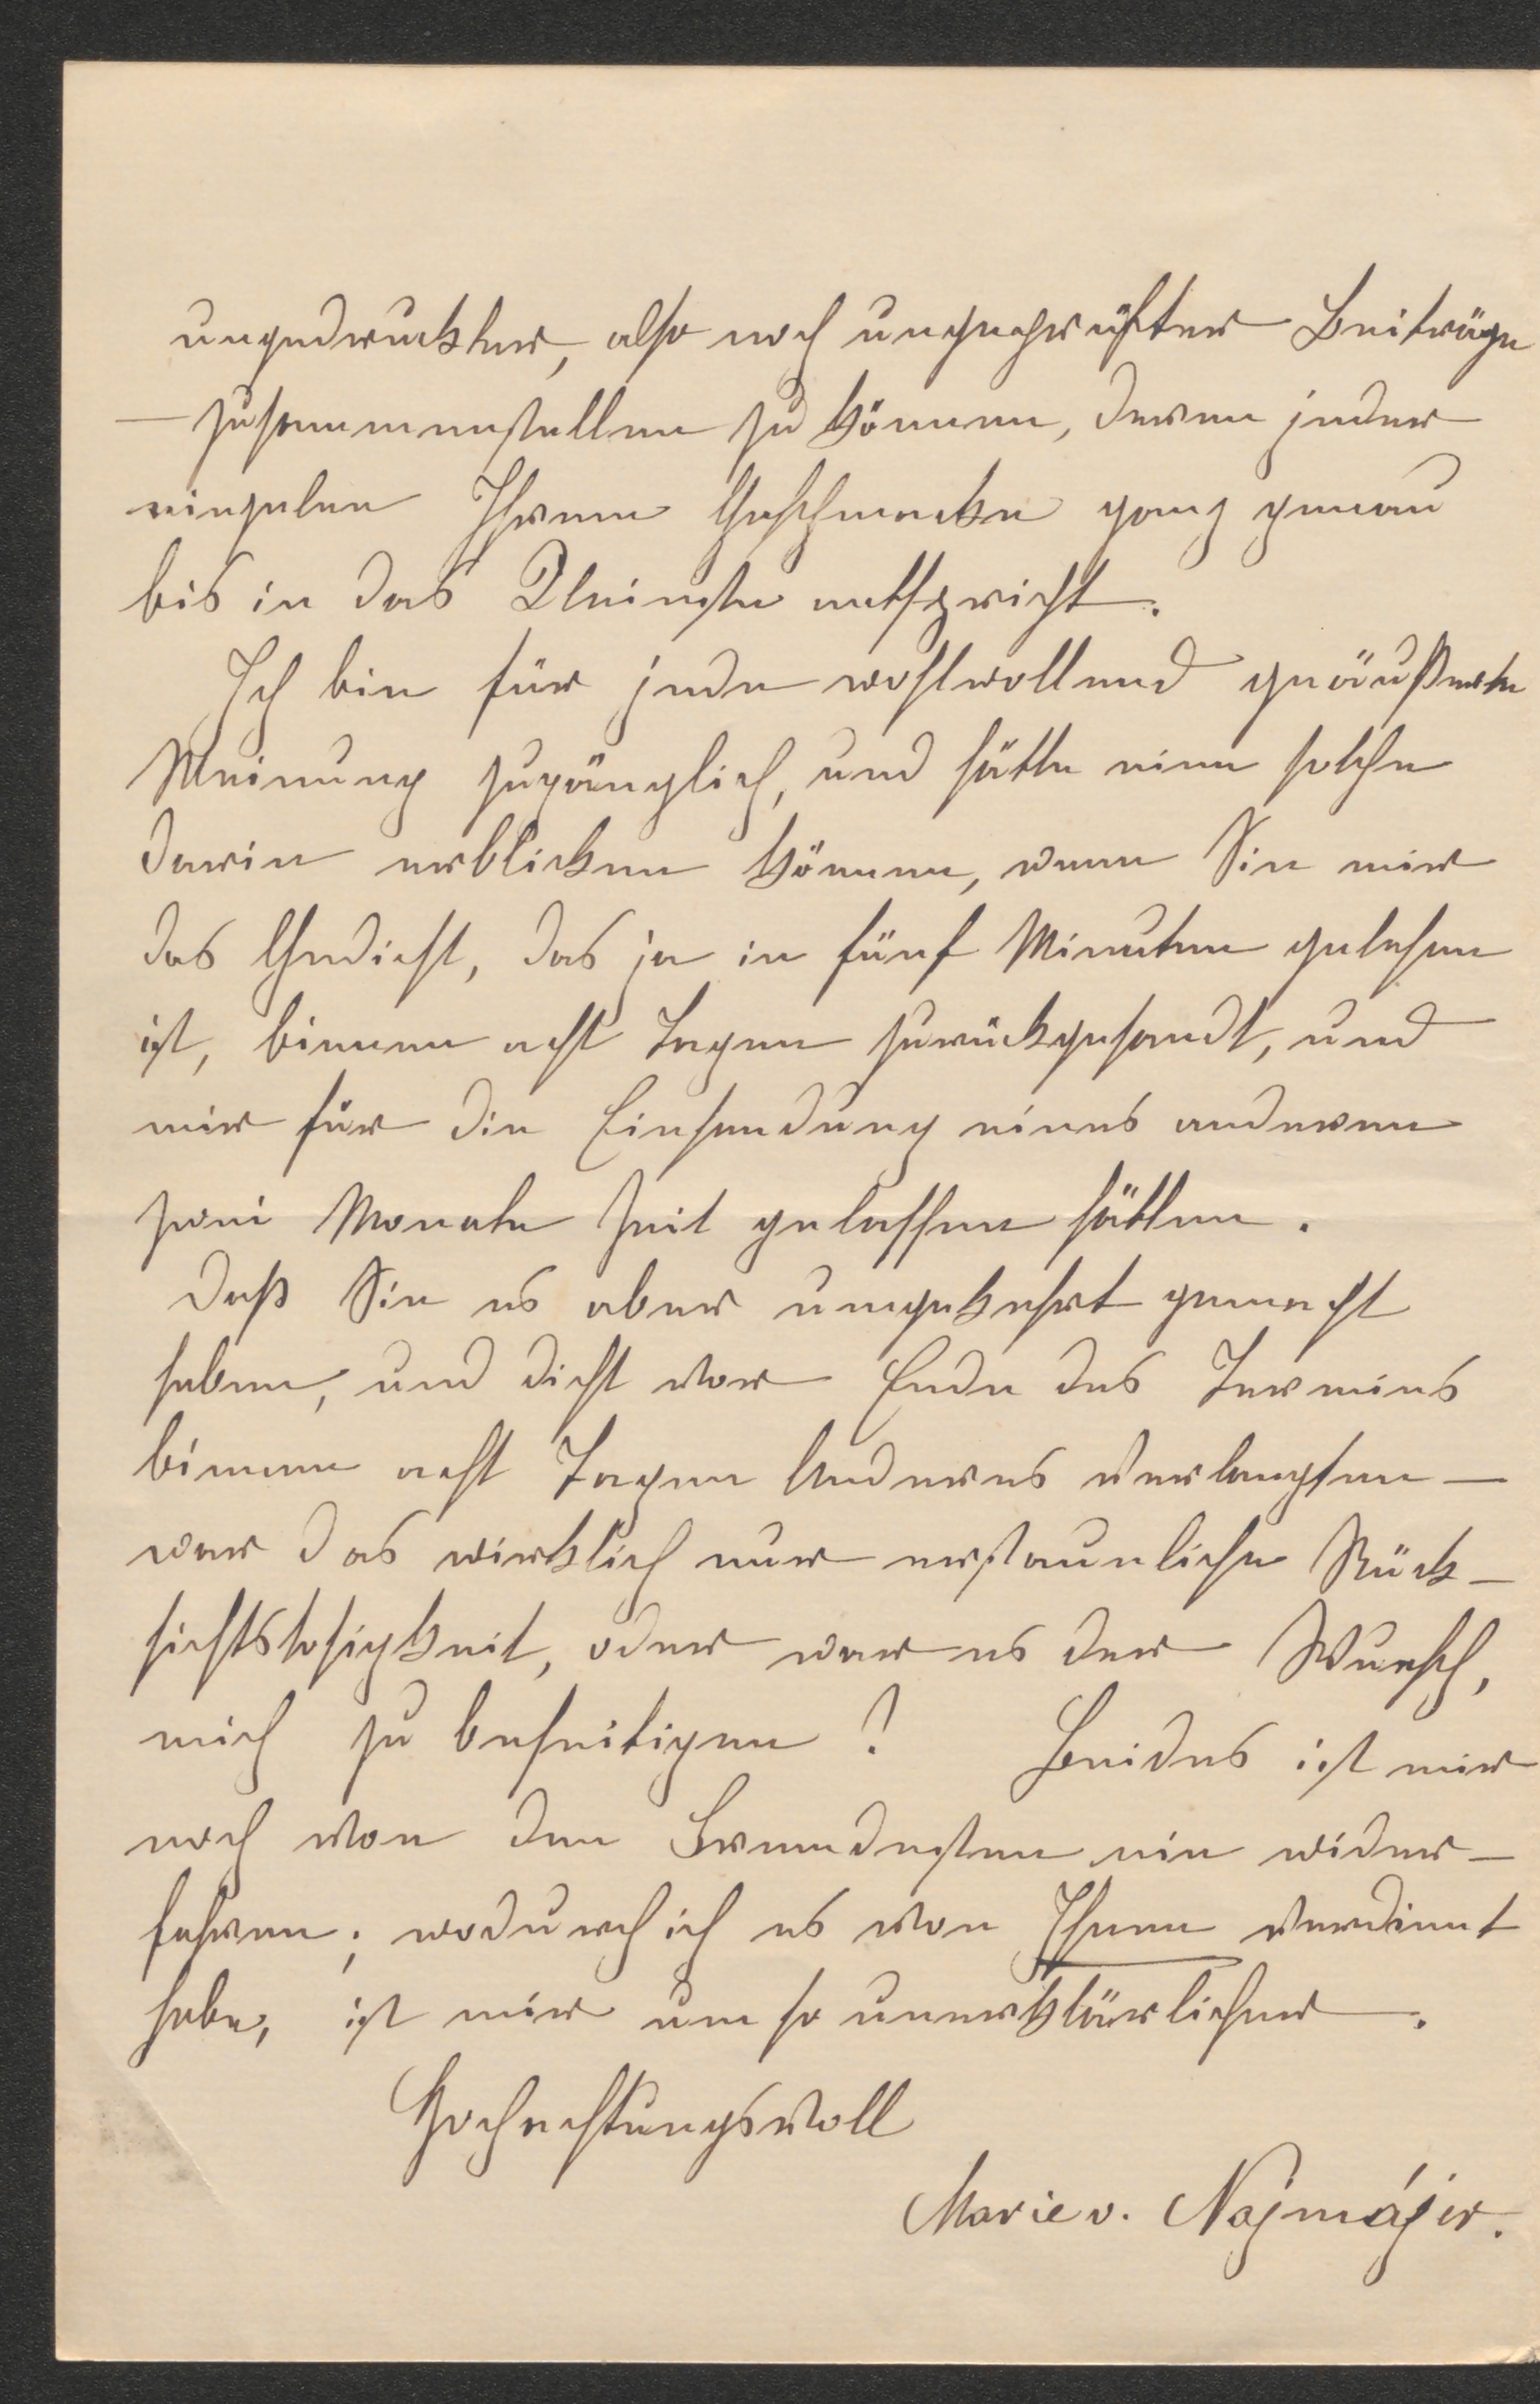 ungedruckter, also noch ungeprüfter Beiträge
– zusammenstellen zu können, deren jeder
einzelne Ihrem Geschmacke ganz genau
bis in das Kleinste entspricht.
Ich bin für jede wohlwollend geäußerte
Meinung zugänglich, und hätte eine solche
darin erblicken können, wenn Sie mir
das Gedicht, das ja in fünf Minuten gelesen
ist, binnen acht Tagen zurückgesandt, und
mir für die Einsendung eines anderen
zwei Monate Zeit gelassen hätten.
Daß Sie es aber umgekehrt gemacht
haben, und dicht vor Ende des Termins
binnen acht Tagen Anderes verlangten –
war das wirklich nur erstaunliche Rück-
sichtslosigkeit, oder war es der Wunsch,
mich zu beseitigen? Beides ist mir
noch von den Fremdesten nie wider-
fahren; wodurch ich es von Ihnen verdient
habe, ist mir um so unerklärlicher.
Hochachtungsvoll
Marie v. Najmájer.